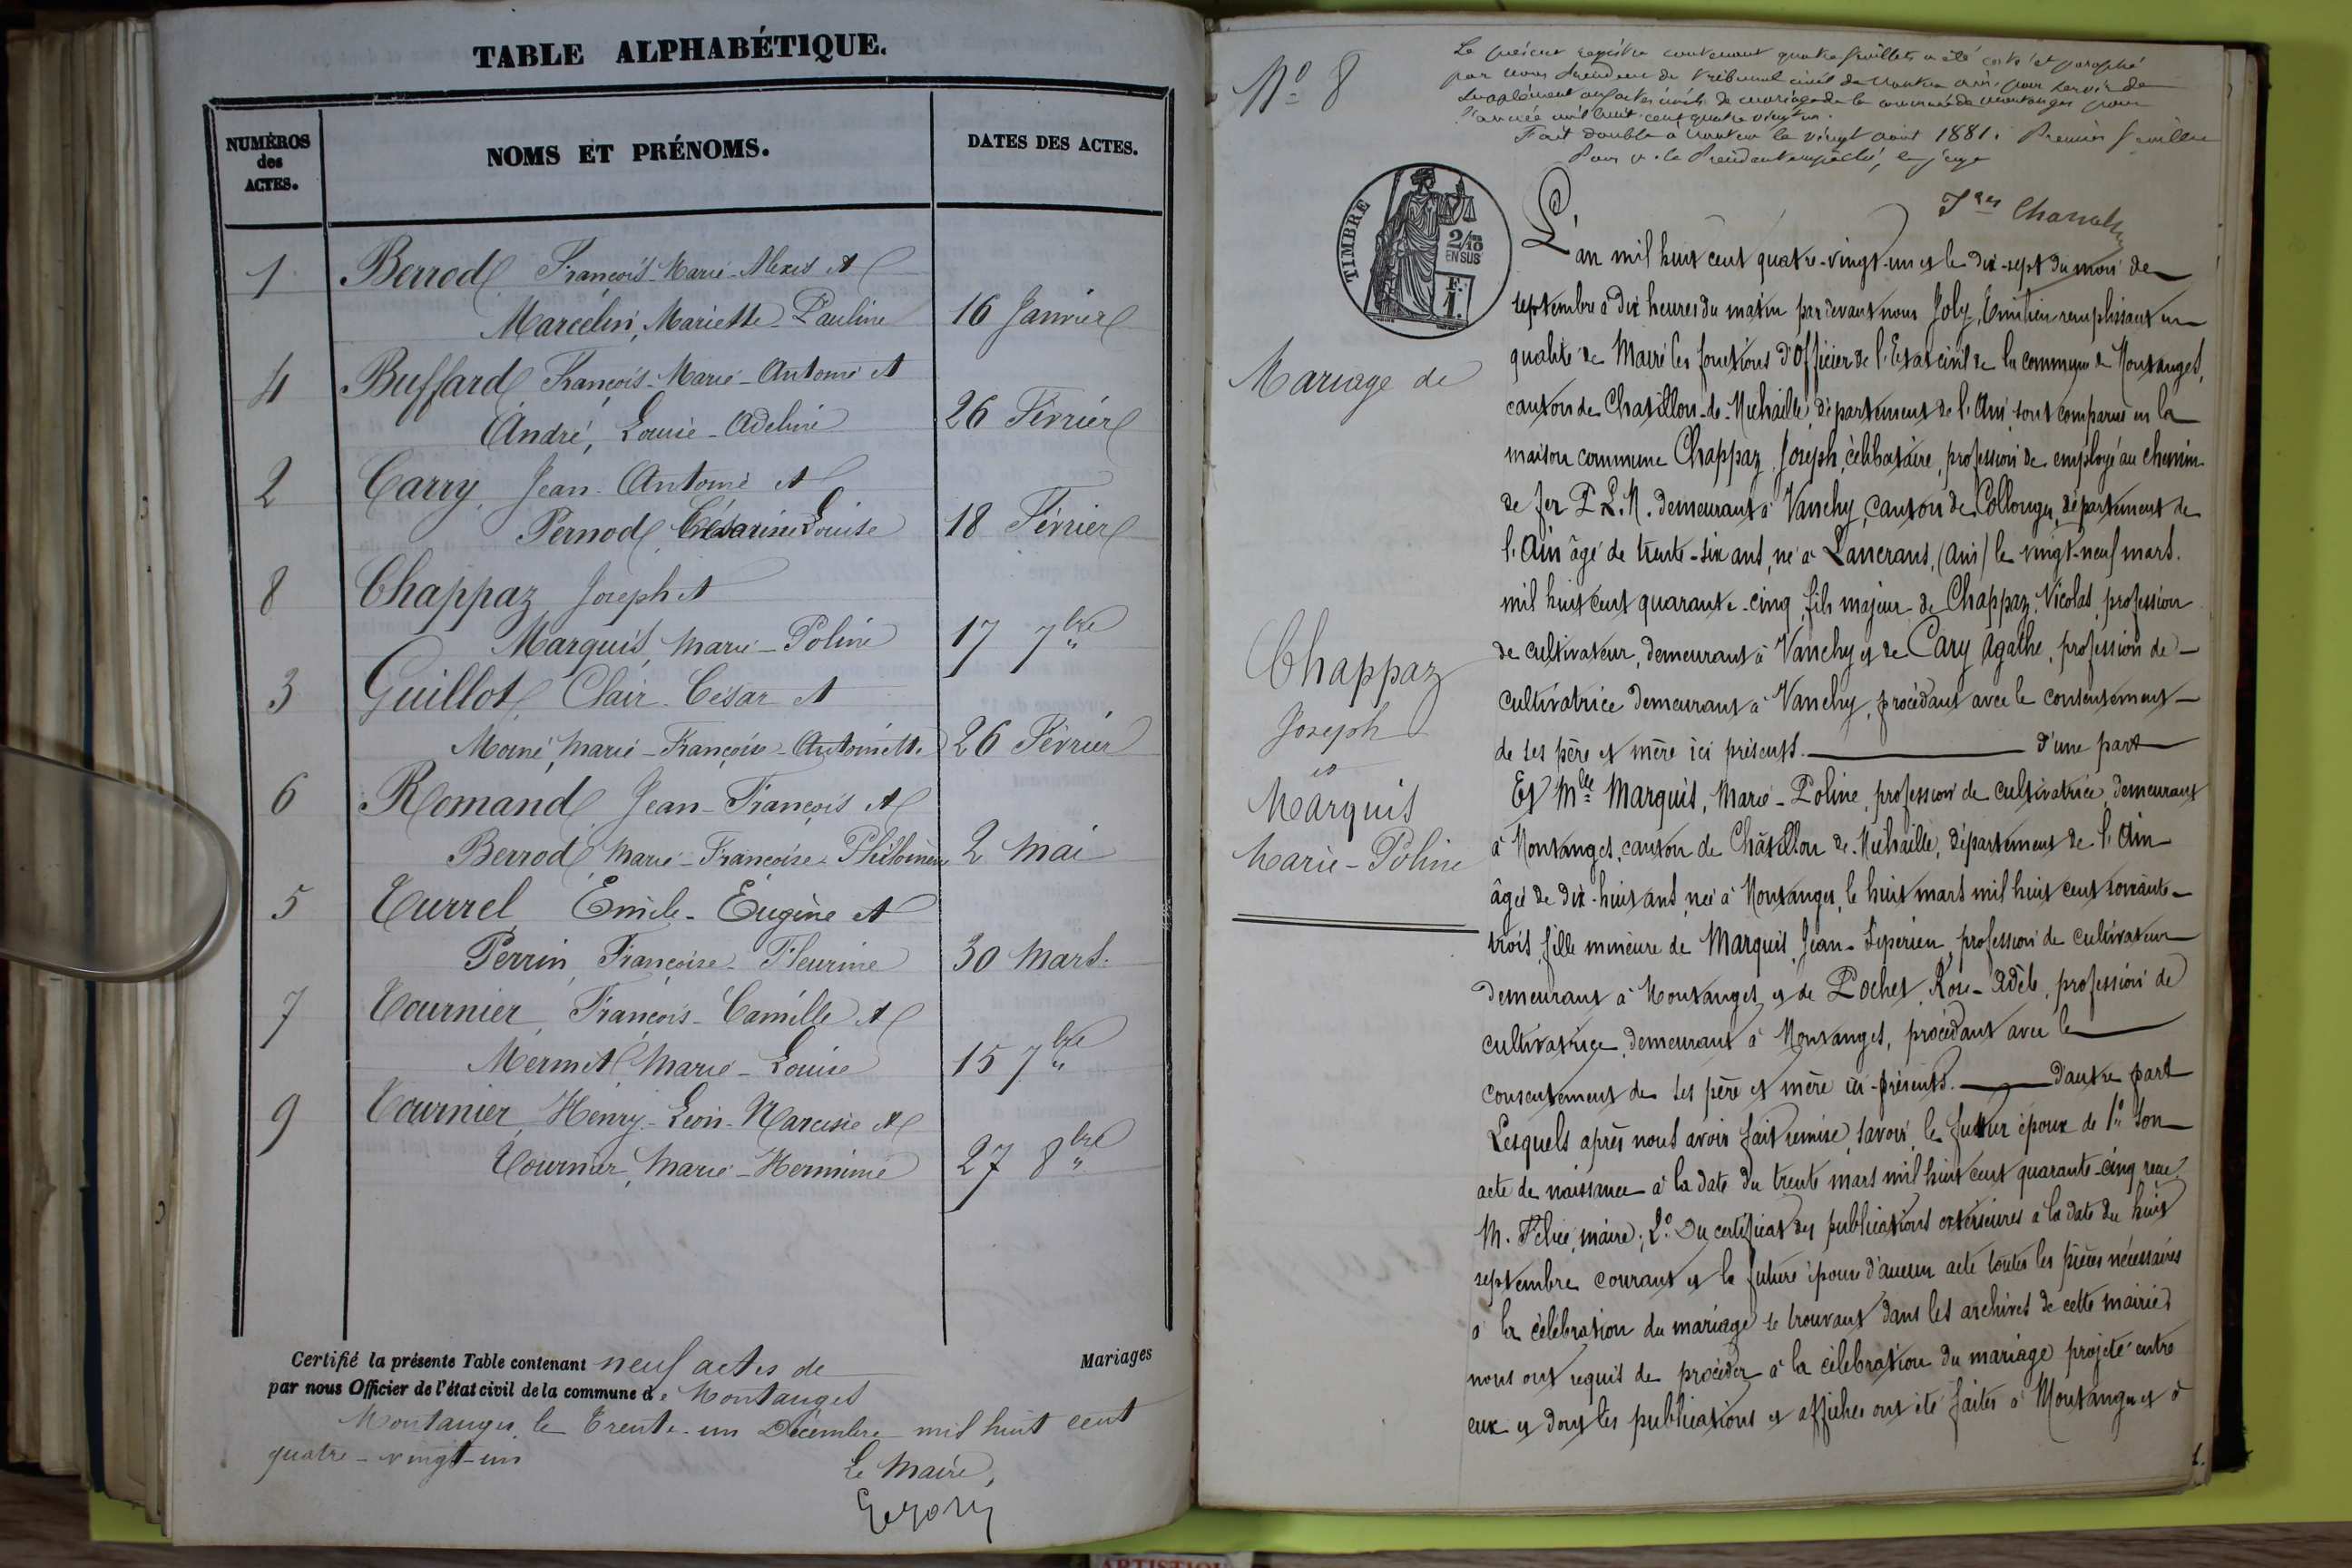 TABLE ALPHABÉTIQUE.
NUMÉROS des ACTES.
NOMS ET PRÉNOMS.
DATES DES ACTES.
1 Berrod, François-Marie-Alexis et
Marcelin, Mariette-Pauline 16 Janvier
4 Buffard François-Marie-Antoine et
André, Louise-Adeline 26 Février
2 Carry, Jean-Antoine et
Pernod, Césarine Louise 18 Février
8 Chappaz Joseph et
Marquis, Marie-Poline 17 7bre
3 Guillot, Clair-César et
Moine, Marie-Françoise-Antoinette 26 Février
6 Romand, Jean-François et
Berrod, Marie-Françoise-Philomène 2 Mai
5 Turrel, Emile-Eugène et
Perrin, Françoise-Fleurine 30 Mars.
7 Tournier, François-Camille et
Mermet, Marie-Louise 15 7bre
9 Tournier, Henry-Léon-Narcisse et
Tournier, Marie-Herminie 27 8bre
Certifié la présente Table contenant neuf actes de Mariages
par nous Officier de l'état civil de la commune de Montanges
Montanges, le Trente-un Décembre mil huit cent
quatre-vingt-un
Le Maire,
No 8
Le présent registre contenant quatre feuillets a été coté et paraphé
par nous Président du Tribunal civil de Nantua Ain, pour servir de
supplément aux actes civils de mariage de la commune de Montanges pour
l'année mil huit cent quatre vingt un.
Fait double à Nantua le vingt août 1881. Premier feuillet
Pour v. le Président empêché, le juge
TIMBRE
2/10 EN SUS
F. 1.
Mariage de
Chappaz
Joseph
et
Marquis
Marie-Poline
L'an mil huit cent quatre-vingt-un et le dix-sept du mois de
septembre à dix heures du matin par devant nous Joly, Emilien remplissant en
qualité de Maire les fonctions d'Officier de l'Etat civil de la commune de Montanges,
canton de Chatillon-de-Michaille, département de l'Ain, sont comparus en la
maison commune Chappaz Joseph, célibataire, profession de employé au chemin
de fer P.L.M. demeurant à Vanchy, canton de Collonges, département de
l'Ain âgé de trente-six ans, né à Lancrans, (Ain) le vingt-neuf mars.
mil huit cent quarante-cinq, fils majeur de Chappaz, Nicolas, profession
de cultivateur, demeurant à Vanchy et de Cary Agathe, profession de
cultivatrice demeurant à Vanchy, procédant avec le consentement
de ses père et mère ici présents. d'une part
Et Mlle Marquis, Marie-Poline, profession de cultivatrice, demeurant
à Montanges, canton de Châtillon de-Michaille, département de l'Ain
âgée de dix-huit ans, née à Montanges, le huit mars mil huit cent soixante-
trois, fille mineure de Marquis, Jean-Superien, profession de cultivateur
demeurant à Montanges et de Pochet, Rose-Adèle, profession de
cultivatrice, demeurant à Montanges, procédant avec le
consentement de ses père et mère ici-présents. d'autre part
Lesquels après nous avoir fait remise, savoir, le futur époux de 1o son
acte de naissance à la date du trente mars mil huit cent quarante-cinq reçu
M. Félice, maire; 2o. Du certificat des publications extérieures à la date du huit
septembre courant et la future épouse d'aucun acte toutes les pièces nécessaires
à la célébration du mariage se trouvant dans les archives de cette mairie
nous ont requis de procéder à la célébration du mariage projeté entre
eux et dont les publications et affiches ont été faites à Montanges et à
1.